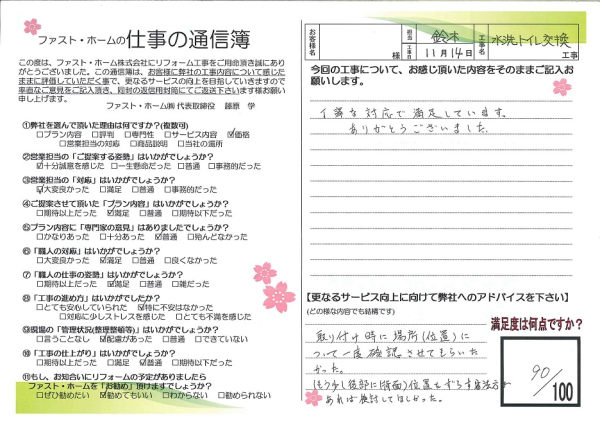 ファスト・ホームの仕事の通信簿
この度は、ファスト・ホーム株式会社にリフォーム工事をご用命頂き誠にあり
がとうございました。この通信簿は、お客様に弊社の工事内容について感じた
ままに評価していただく事で、更なるサービスの向上を目指していきますので
率直なご意見をご記入頂き、同封の返信用封筒にてご返送下さいます様お願い
申し上げます。
ファスト・ホーム㈱ 代表取締役 藤原 学
①弊社を選んで頂いた理由は何ですか?(複数可)
□プラン内容 □評判 □専門性 □サービス内容 ☑価格
□営業担当の対応 □商品説明 □当社の遍所
②営業担当の「ご提案する姿勢」はいかがでしょうか?
☑十分誠意を感じた □一生懸命だった □普通 □事務的だった
③営業担当の「対応」はいかがでしょうか?
☑大変良かった □満足 □普通 □事務的だった
④ご提案させて頂いた「プラン内容」はいかがでしょうか?
□期待以上だった ☑満足 □普通 □期待以下だった
⑤プラン内容に「専門家の意見」はありましたでしょうか?
□かなりあった □十分あった ☑普通 □殆んどなかった
⑥「職人の対応」はいかがでしょうか?
□大変良かった ☑満足 □普通 □良くなかった
⑦「職人の仕事の姿勢」はいかがでしょうか?
□期待以上だった ☑満足 □普通 □雑だった
⑧「工事の進め方」はいかがでしたか?
□とても安心していられた ☑特に不安はなかった
□対応に少しストレスを感じた □とても不満を感じた
⑨現場の「管理状況(整理整頓等)」はいかがでしょうか?
□言うことなし ☑配慮があった □普通 □できていない
⑩「工事の仕上がり」はいかがでしょうか?
□期待以上だった □満足 ☑普通 □期待以下だった
⑪もし、お知合いにリフォームの予定がありましたら
ファスト・ホームを「お勧め」頂けますでしょうか?
□ぜひ勧めたい ☑勧めてもいい □わからない □勧められない
お客様名 様
担当 鈴木
工事日 11月14日
工事名 水洗トイレ交換 工事
今回の工事について、お感じ頂いた内容をそのままご記入お
願いします。
丁寧な対応で満足しています。
ありがとうございました。
【更なるサービス向上に向けて弊社へのアドバイスを下さい】
(どの様な内容でも結構です)
取り付け時に場所(位置)に
ついて一度確認させてもらいた
かった。
位置をずらす
あれば検討してほしかった。
満足度は何点ですか?
90/100